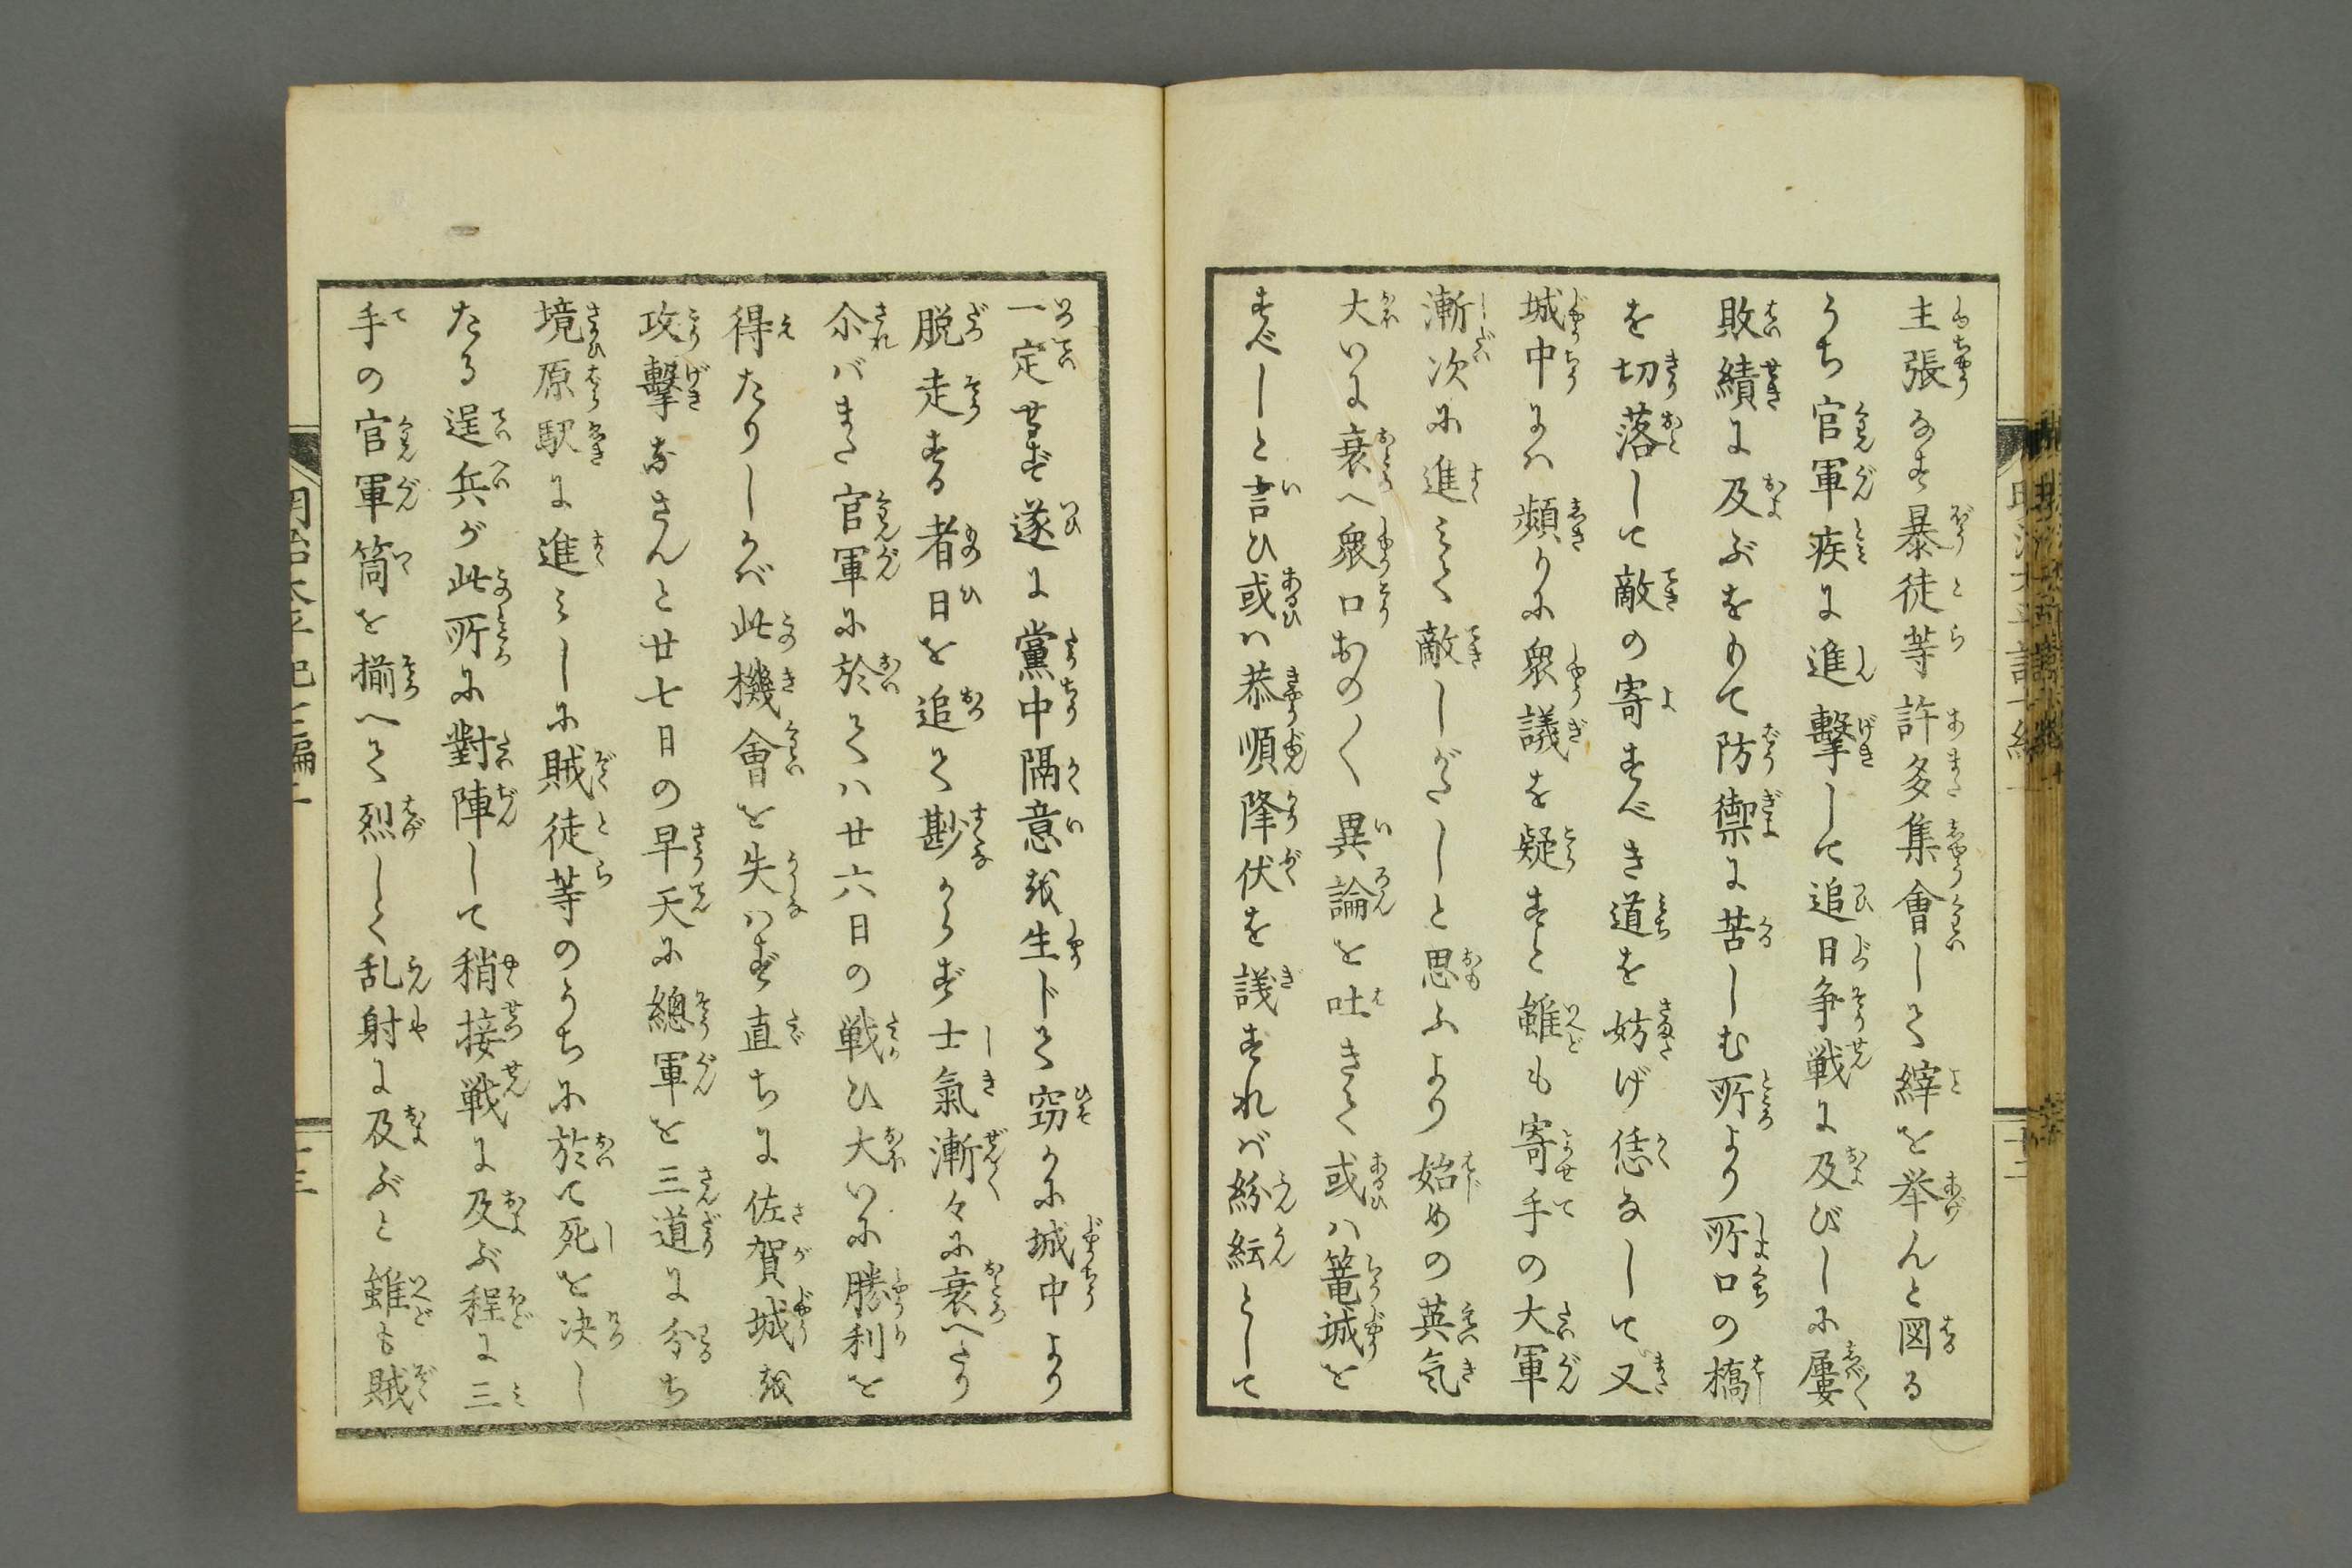 主張なす暴徒等許多集會して縡を挙んと図る
うち官軍疾に進撃して追日争戦に及びしに屢
敗績に及ぶをもて防禦に苦しむ所より所口の橋
を切落して敵の寄すべき道を妨げ恁なして又
城中には頻りに衆議を疑すと雖も寄手の大軍
漸次に進みて敵しがたしと思ふより始めの英気
大いに衰へ衆口おの〱異論を吐きて或は篭城を
すべしと言ひ或は恭順降伏を議すれば紛紜として
一定せず遂に黨中隔意を生じて窃かに城中より
脱走する者日を追て尠からず士氣漸々に衰へたり
尒ばまた官軍に於ては廿六日の戦ひ大いに勝利を
得たりしかば此機會を失はず直ちに佐賀城を
攻擊なさんと廿七日の早天に總軍を三道に分ち
境原駅に進みしに賊徒等のうちに於て死を决し
たる逞兵が此所に對陣して稍接戦に及ぶ程に三
手の官軍筒を揃へて烈しく乱射に及ぶと雖も賊
明治太平記 三編
十三